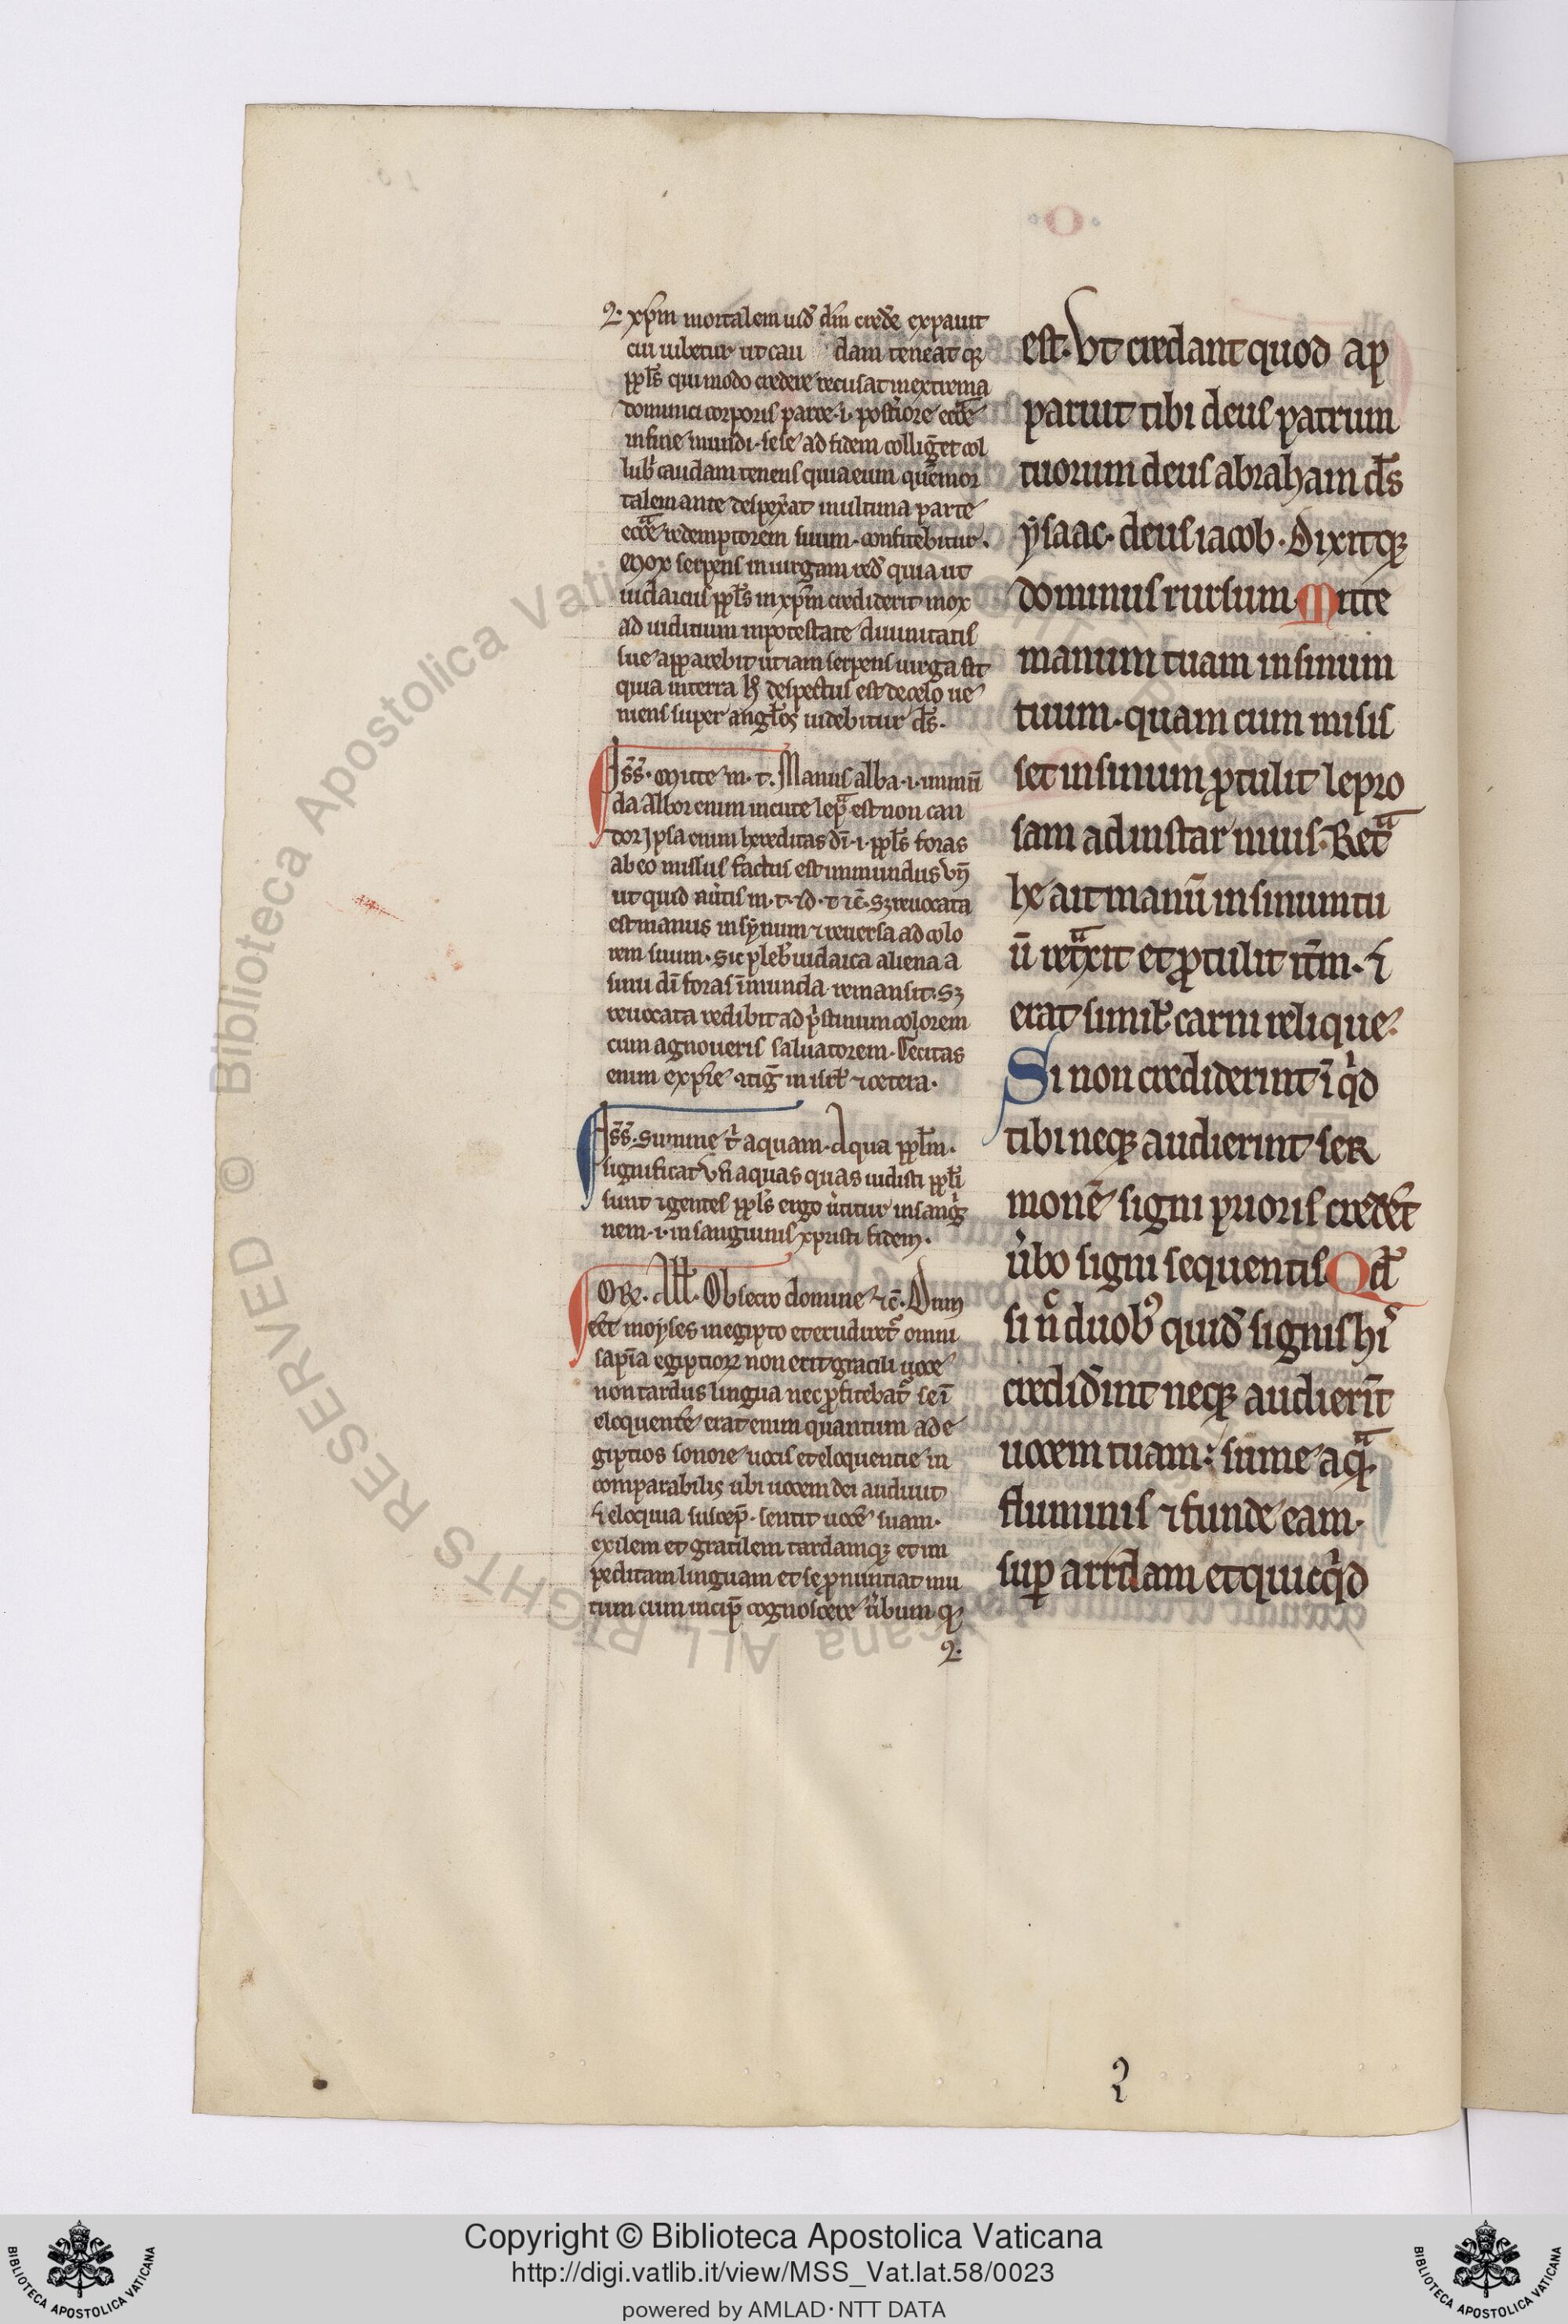 xp̄m mortalem uid̄ dm̄ cred̄e expauit
cui iubetur ut cau dam teneat qꝫ
ppl̄s qui modo credere recusat in extrema
dominici corporis parte .i. post̄iore eccl̄e
in fine mundi sese ad fidem colliḡet col
lub̄ caudam tenens quia eum quē mor
talem ante despex̄at in ultima parte
redemptorem suum confitebitur.
Mox serpens in uirgam red̄ quia ut
iudaicus ppl̄s in xp̄m crediderit mox
ad iuditium in potestate diuinitatis
sue apparebit ut iam serpens uirga sit
quia in terra despectus est de celo ue
niens super angl̄os uidebitur ds̄.
Mitte m. t. Manus alba .i. inmun̄
da Albor enim in cute lep̄ est non can
dor Ipsa enim hereditas dī .i. ppl̄s foras
ab eo missus factus est inmundus vn̄
ut quid au̓tis m. t. ⁊ d. t. ⁊c̄. Sꝫ reuocata
est manus in synum ⁊ reuersa ad colo
rem suum. Sic plebs iudaica aliena a
sinu dī foras īmunda remansit. Sꝫ
reuocata redibit ad p̓stinum colorem
cum agnoueris saluatorem. Cecitas
enim ex pt̄e ⁊tiḡ in isrl̄ ⁊ cetera.
Summe t̓ aquam. Aqua ppl̄m.
significat Vn̄ aquas quas uidisti ppl̄i
sunt ⁊ gentes ppl̄s ergo u̓titur in sang̓
nem .i. in sanguinis xpristi fidem.
Obsecro domine ⁊c̄. Dum
eēt moyses in egipto et erudiret᷑ omni
sapīa egiptioꝝ non erit gracili uoce
non tardus lingua nec ꝓfitebat᷑ se ī
eloquentē erat enim quantum ad e
giptios sonore uocis et eloquentie in
comparabilis ubi uocem dei audiuit
⁊ eloquia suscep̄. sentit uocē suam.
exilem et gracilem tardamqꝫ et im
peditam linguam et se ꝓnuntiat mu
tum cum incip̄ cognoscere u̓bum qꝫ
est. Vt credant quod ap
paruit tibi deus patrum
tuorum deus abraham ds̄
ysaac. deus iacob. Dixitqꝫ
dominus rursum Mitte
manum tuam in sinum
tuum. quam cum misis
set in sinum ꝓtulit lepro
sam ad instar niuis. Retͣ
he ait manū in sinum tu
ū retͣxit et ꝓtulit it̄m. ⁊
erat simil̓ carni relique.
Si non crediderint īq̓d
tibi neqꝫ audierint ser
monē signi prioris credēt
u̓bo signi sequentis Qd̄
si nͨ duob᷒ quid̄ signis hi᷒
credid̄int neqꝫ audierīt
uocem tuam: sume aqͣ
fluminis ⁊ funde eam.
suꝑ arridam et quicq̓d
Copyright © Biblioteca Apostolica Vaticana
http://digi.vatlib.it/view/MSS_Vat.lat.58/0023
powered by AMLAD · NTT DATA
BIBLIOTECA APOSTOLICA VATICANA
BIBLIOTECA APOSTOLICA VATICANA
© Biblioteca Apostolica Vaticana ALL RIGHTS RESERVED